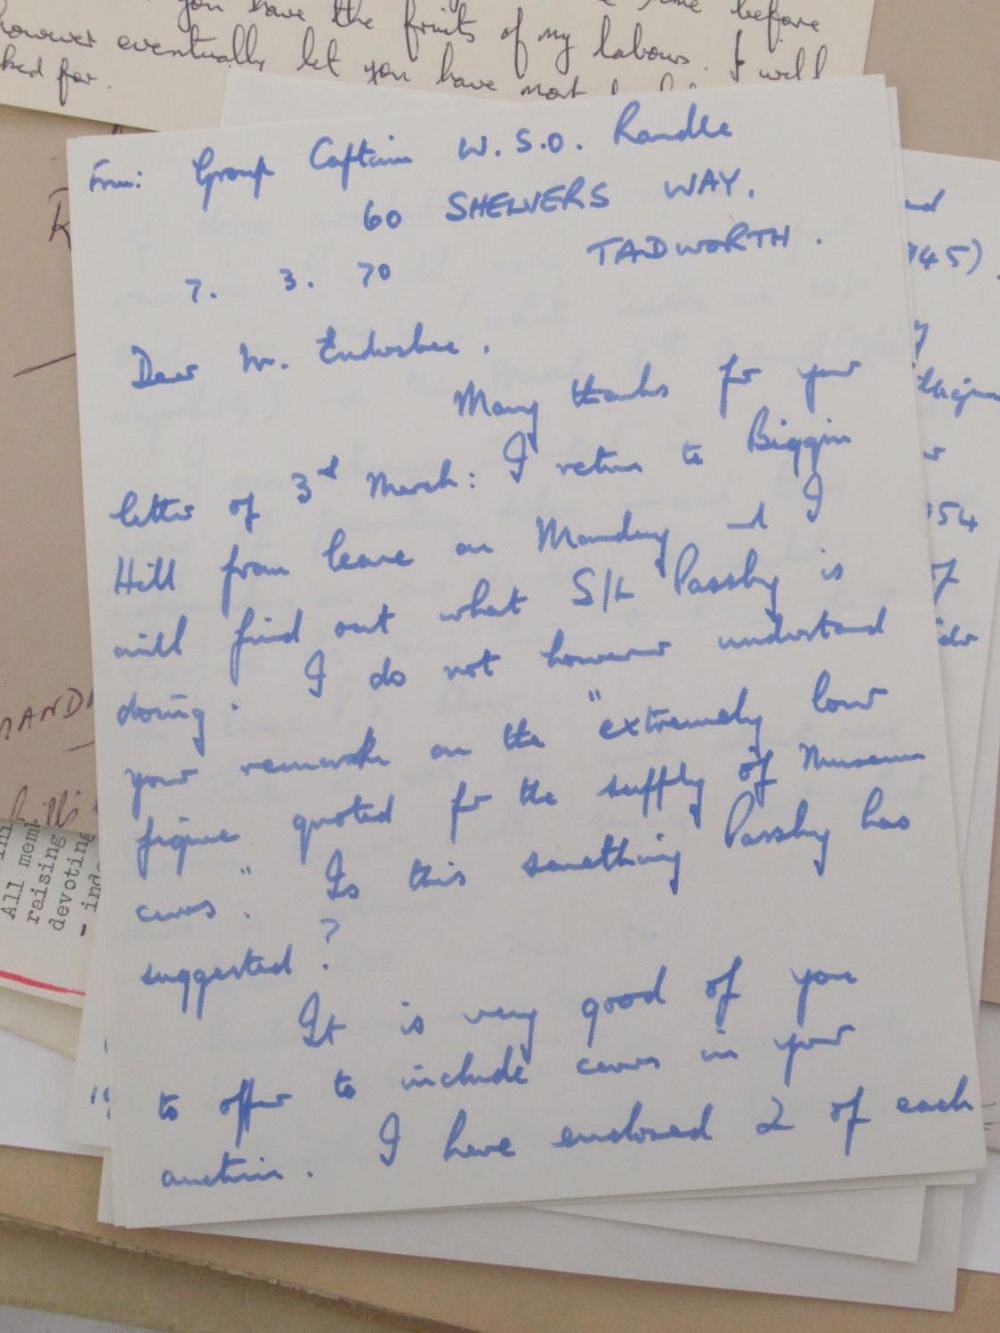 you have the fruits of my labours. I will
however eventually let you have most
ked for.
From: Group Captain W.S.O. Randle
60 SHELVERS WAY.
TADWORTH.
7. 3. 70
Dear Mr.
Many thanks for your
letter of 3rd March: I return to Biggin
Hill from leave on Monday and I
will find out what S/L Passby is
doing. I do not however understand
your remarks on the "extremely low
figure quoted for the supply of Museum
covers". Is this something Passby has
suggested?
It is very good of you
to offer to include covers in your
auction. I have enclosed 2 of each
945).
954
All mem
raising
devoting
- ind